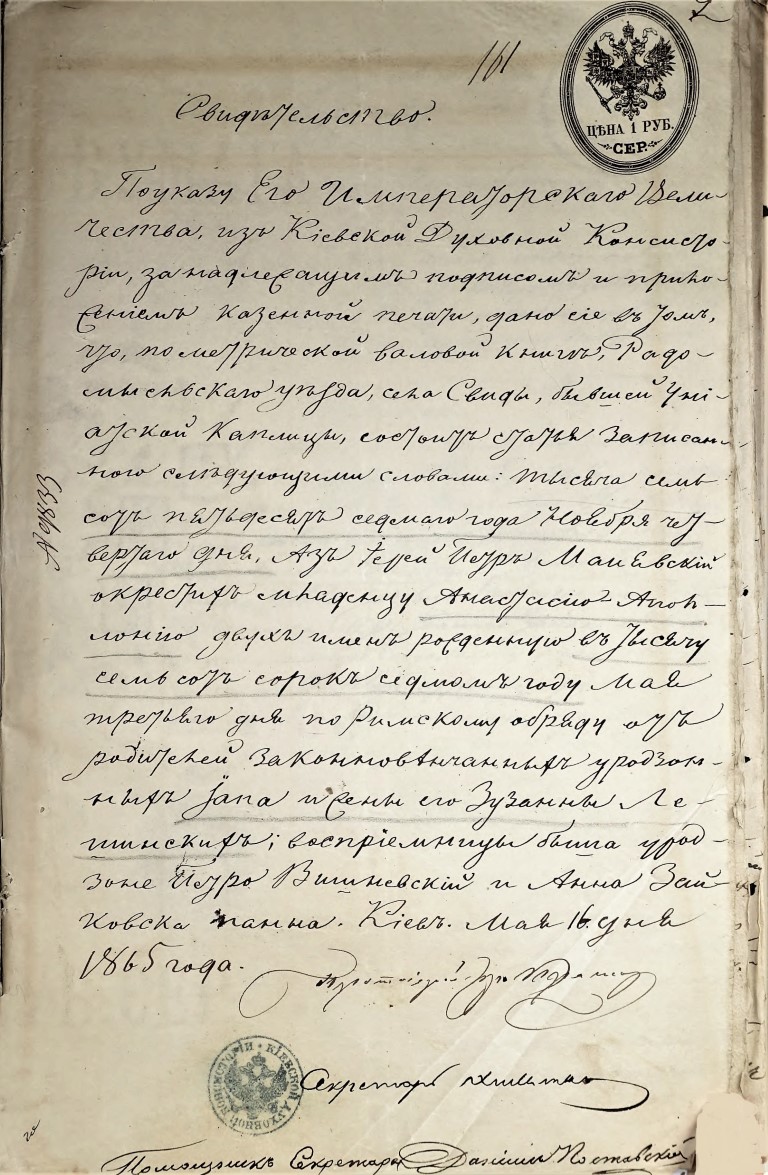 161
2
ЦѢНА 1 РУБ.
СЕР.
Свидѣтельство.
По указу Его Императорскаго Вели-
чества, изъ Кіевской Духовной Консисто-
ріи, за надлежащимъ подписомъ и прило-
женіемъ казенной печати, дано сіе въ томъ,
что, по метрической валовой книгѣ, Радо-
мысльскаго уѣзда, села Свиды, бывшей Уні-
атской Каплицы, состоитъ статья записан-
ного слѣдующими словами: тысяча семь
сотъ пятьдесятъ седмаго года Ноября чет-
вертаго дня, Азъ Іерей Петръ Мацѣвскій
окрестихъ младенцу Анастасію-Апол-
лонію двухъ именъ рожденную въ тысячу
семь сотъ сорокъ седмомъ году Мая
третьяго дня по Римскому обряду отъ
родителей законновѣнчанныхъ уродзон-
ныхъ Яна и жены его Зузанны Ле-
щинскихъ; воспріемницы была урод-
зоне Петро Вишневскій и Анна Зай-
ковска панна. Кіевъ. Мая 16 дня
1865 года.
№ 9833
Протоіерей
КІЕВСКОЙ ДУХОВНОЙ КОНСИСТОРІИ
Секретарь
Помощникъ Секретаря Даніилъ Поставскій